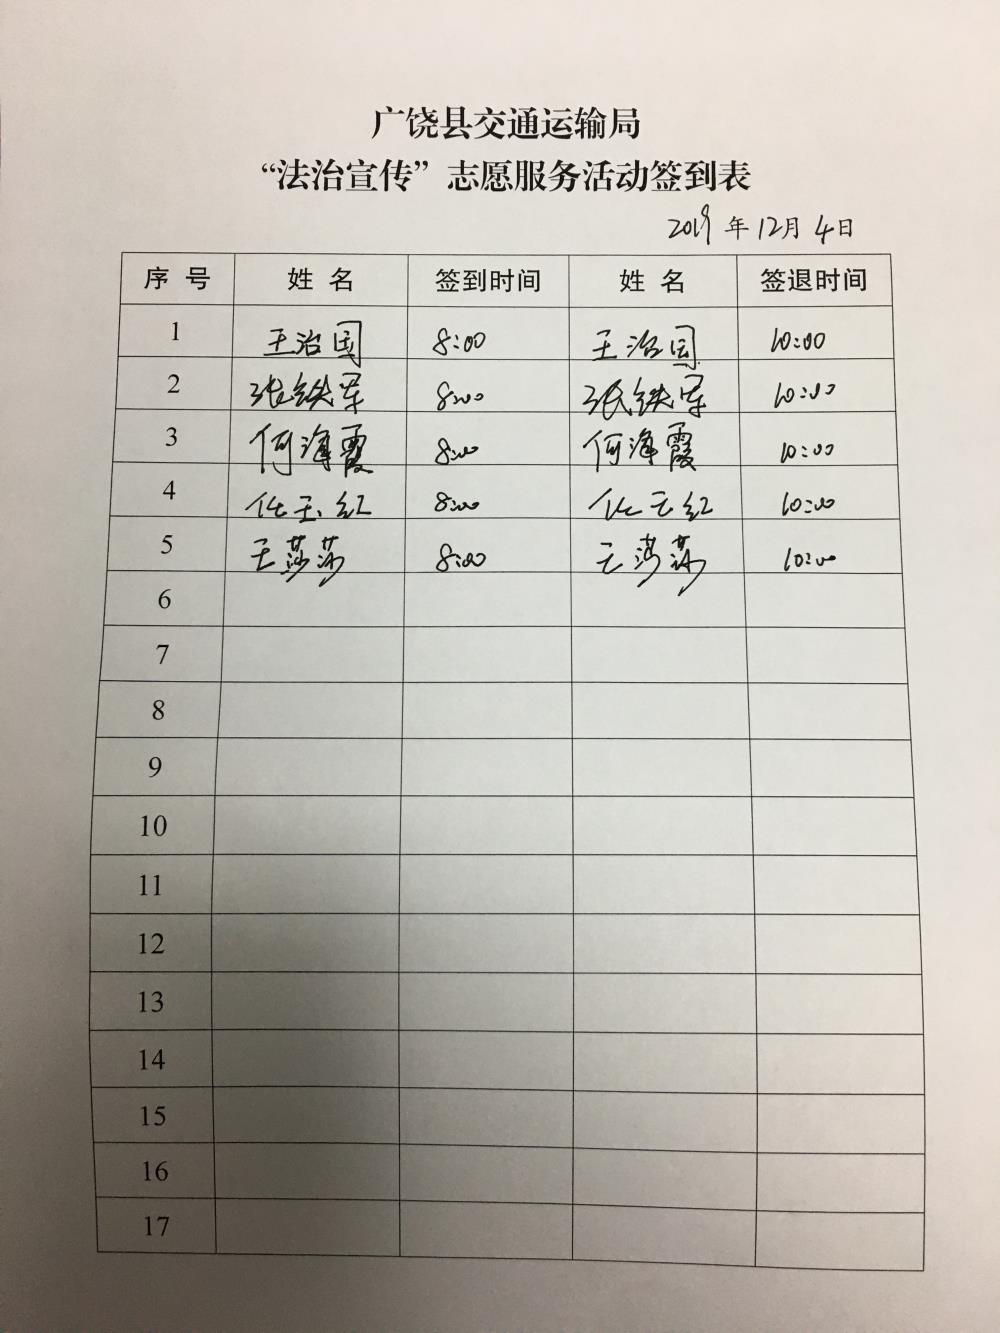 广饶县交通运输局
“法治宣传”志愿服务活动签到表
2019年12月4日
序号 姓名 签到时间 姓名 签退时间
1 王治国 8:00 王治国 10:00
2 张铁军 8:00 张铁军 10:00
3 何海霞 8:00 何海霞 10:00
4 任玉红 8:00 任玉红 10:00
5 王莎莎 8:00 王莎莎 10:00
6
7
8
9
10
11
12
13
14
15
16
17